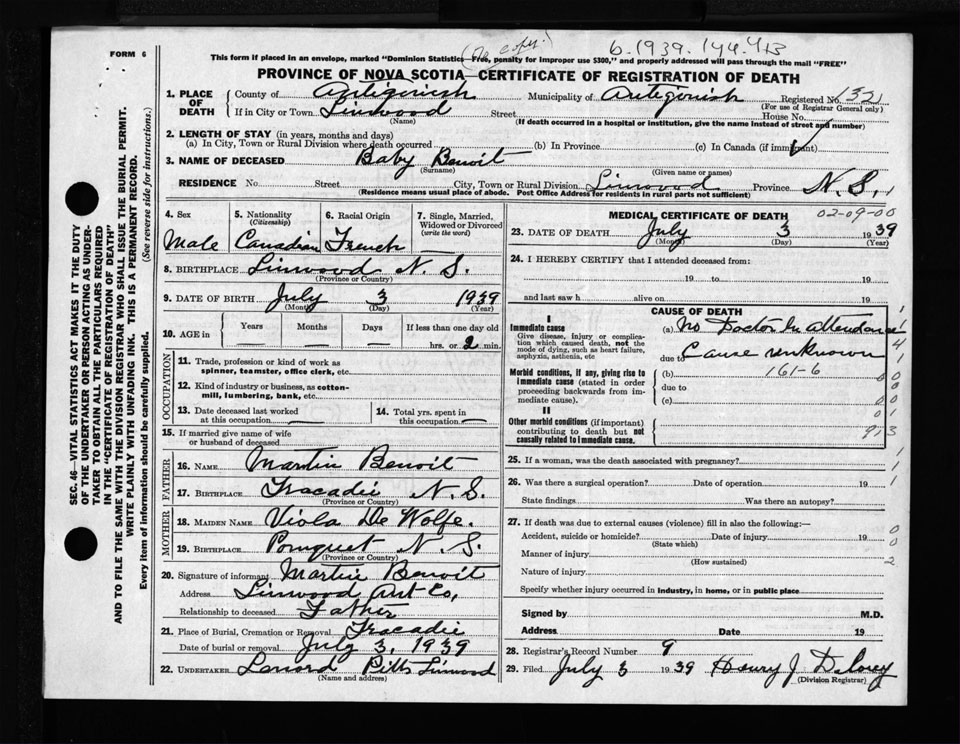 FORM 6
(no copy.)
6.1939.144.413
This form if placed in an envelope, marked "Dominion Statistics—Free, penalty for improper use $300," and properly addressed will pass through the mail "FREE"
PROVINCE OF NOVA SCOTIA—CERTIFICATE OF REGISTRATION OF DEATH
1. PLACE OF DEATH County of Antigonish Municipality of Antigonish Registered No. 1321
(For use of Registrar General only)
If in City or Town Linwood Street House No.
(Name) (If death occurred in a hospital or institution, give the name instead of street and number)
2. LENGTH OF STAY (in years, months and days)
(a) In City, Town or Rural Division where death occurred (b) In Province (c) In Canada (if immigrant)
3. NAME OF DECEASED Baby Benoit
(Surname) (Given name or names)
RESIDENCE No. Street City, Town or Rural Division Linwood Province N. S.
(Residence means usual place of abode. Post Office Address for residents in rural parts not sufficient)
4. Sex 5. Nationality (Citizenship) 6. Racial Origin 7. Single, Married, Widowed or Divorced (write the word)
Male Canadian French
8. BIRTHPLACE Linwood N. S.
(Province or Country)
9. DATE OF BIRTH July 3 1939
(Month) (Day) (Year)
10. AGE in Years Months Days If less than one day old
hrs. or 2 min.
OCCUPATION
11. Trade, profession or kind of work as spinner, teamster, office clerk, etc.
12. Kind of industry or business, as cotton-mill, lumbering, bank, etc.
13. Date deceased last worked at this occupation 14. Total yrs. spent in this occupation
15. If married give name of wife or husband of deceased
FATHER
16. NAME Martin Benoit
17. BIRTHPLACE Tracadie N. S.
(Province or Country)
MOTHER
18. MAIDEN NAME Viola De Wolfe.
19. BIRTHPLACE Pomquet N. S.
(Province or Country)
20. Signature of informant Martin Benoit
Address Linwood Ant Co,
Relationship to deceased Father
21. Place of Burial, Cremation or Removal Tracadie
Date of burial or removal July 3, 1939
22. UNDERTAKER Lenord Pitts Linwood
(Name and address)
MEDICAL CERTIFICATE OF DEATH
02-09-00
23. DATE OF DEATH July 3 1939
(Month) (Day) (Year)
24. I HEREBY CERTIFY that I attended deceased from:
19 to 19
and last saw h alive on 19
CAUSE OF DEATH
I
Immediate cause
Give disease, injury or complication which caused death, not the mode of dying, such as heart failure, asphyxia, asthenia, etc
(a) No Doctor in attendance
due to Cause unknown
Morbid conditions, if any, giving rise to immediate cause (stated in order proceeding backwards from immediate cause).
(b) 161-6
due to
(c)
II
Other morbid conditions (if important) contributing to death but not causally related to immediate cause.
913
25. If a woman, was the death associated with pregnancy?
26. Was there a surgical operation? Date of operation 19
State findings Was there an autopsy?
27. If death was due to external causes (violence) fill in also the following:—
Accident, suicide or homicide? Date of injury 19
(State which)
Manner of injury
(How sustained)
Nature of injury
Specify whether injury occurred in industry, in home, or in public place
Signed by M.D.
Address Date 19
28. Registrar's Record Number 9
29. Filed July 3 1939 Henry J. Delorey
(Division Registrar)
SEC. 46—VITAL STATISTICS ACT MAKES IT THE DUTY
OF THE UNDERTAKER OR PERSON ACTING AS UNDER-
TAKER TO OBTAIN ALL THE PARTICULARS REQUIRED
IN THE "CERTIFICATE OF REGISTRATION OF DEATH"
AND TO FILE THE SAME WITH THE DIVISION REGISTRAR WHO SHALL ISSUE THE BURIAL PERMIT.
WRITE PLAINLY WITH UNFADING INK. THIS IS A PERMANENT RECORD.
Every item of information should be carefully supplied. (See reverse side for instructions.)